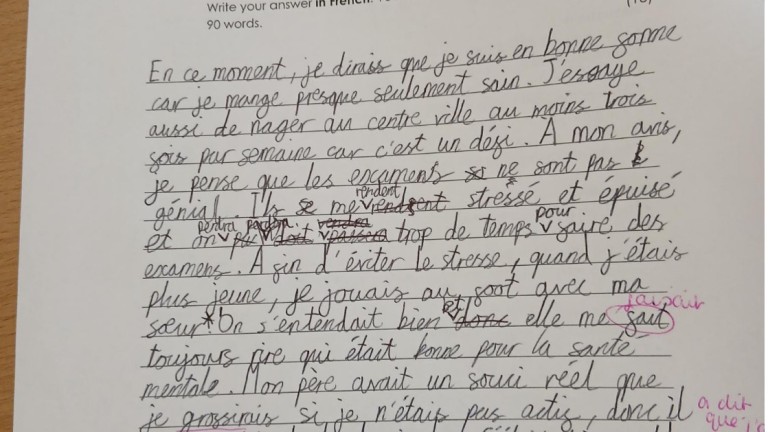 Write your answer in French.
90 words.
En ce moment, je dirais que je suis en bonne forme
car je mange presque seulement sain. J'essaye
aussi de nager au centre ville au moins trois
fois par semaine car c'est un défi. A mon avis,
je pense que les examents ne sont pas
génial. Ils me rendent stressé et épuisé
et on perdra trop de temps pour faire des
examens. Afin d'éviter le stresse, quand j'étais
plus jeune, je jouais au foot avec ma
j'ai
sœur* On s'entendait bien et elle me fait
toujours rire qui était bonne pour la santé
mentale. Mon père avait un souci réel que
je grossirais si je n'étais pas actif, donc il a dit
que j'